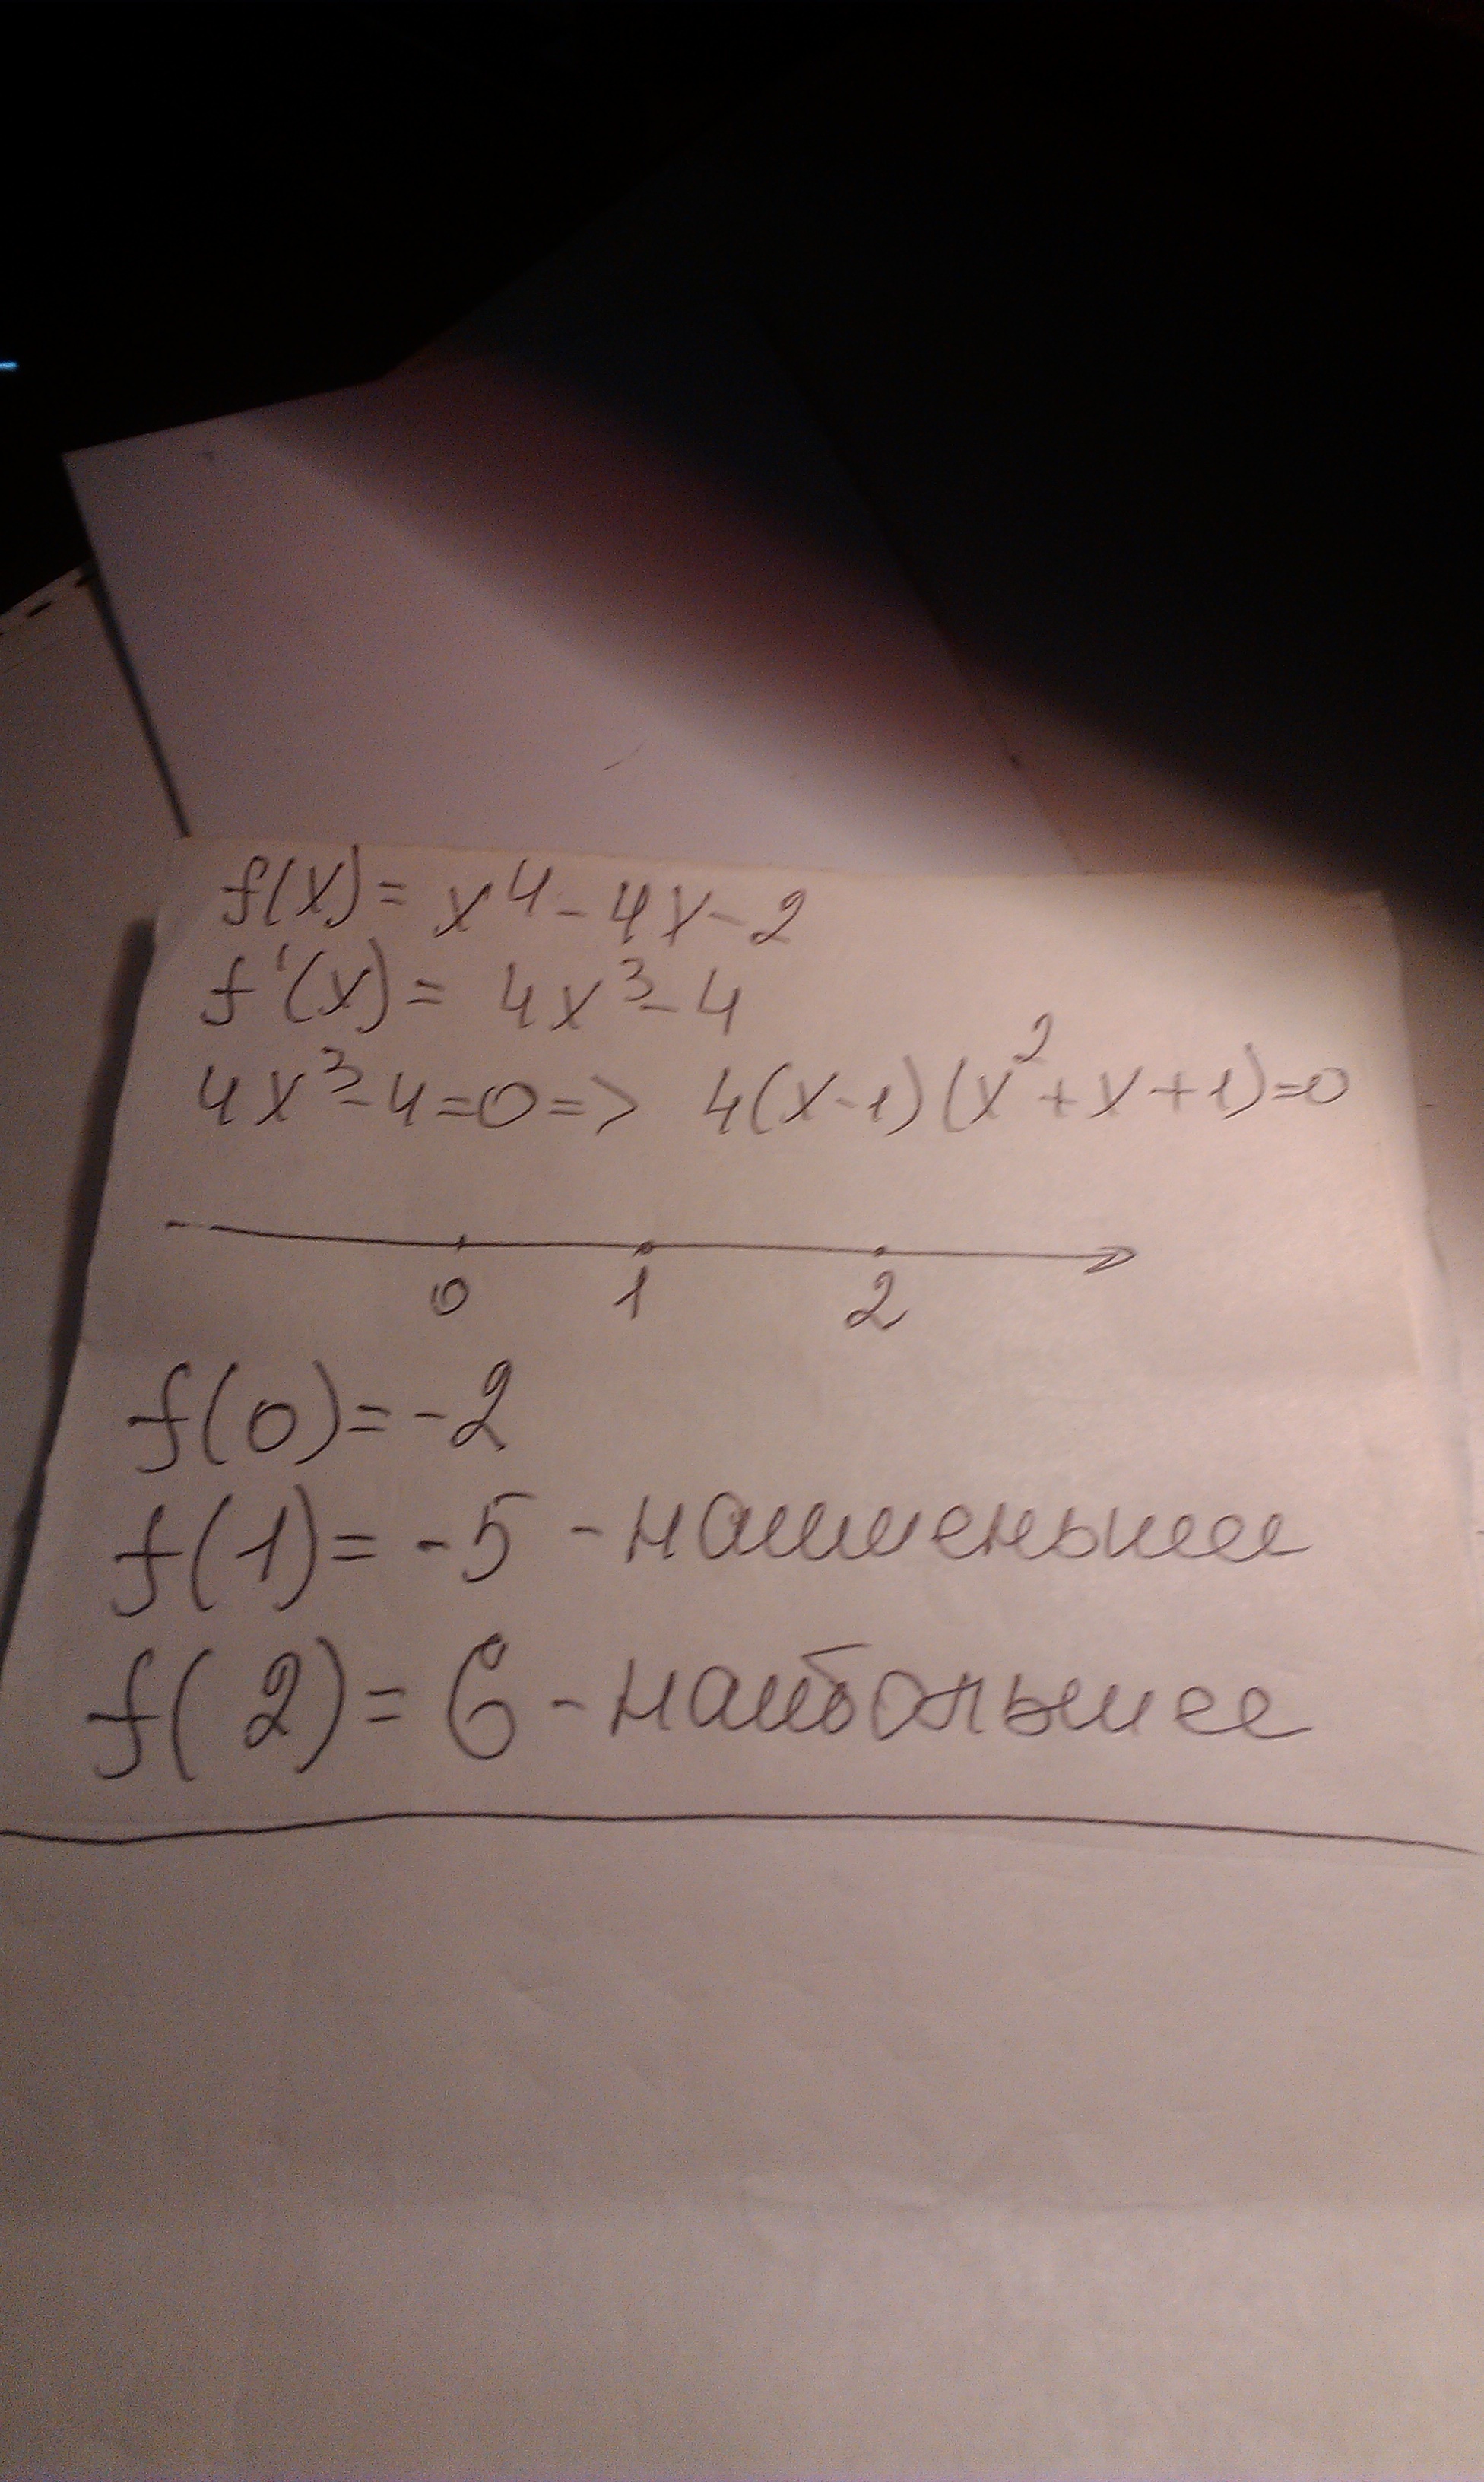 f(x)= x⁴-4x-2
f'(x)= 4x³-4
4x³-4=0=> 4(x-1)(x²+x+1)=0
0 1 2
f(0)=-2
f(1)=-5 - наименьшее
f(2)=6 - наибольшее